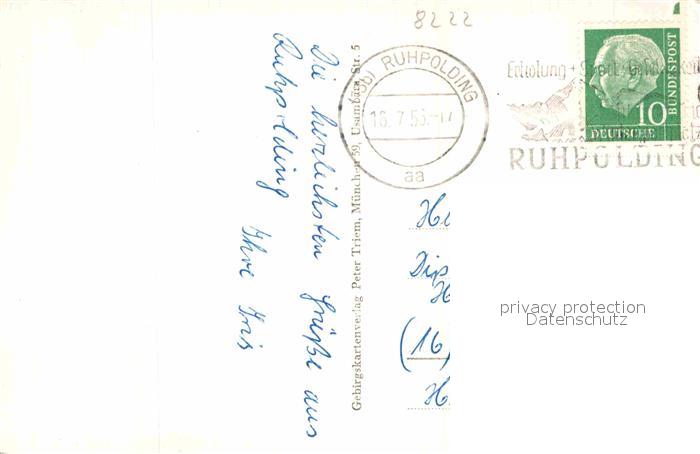 8222
Die herzlichsten Grüße aus
Ruhpolding
Ihre Iris
Gebirgskartenverlag Peter Triem, München 59, Usambara Str. 5
RUHPOLDING
aa
Erholung +
RUHPOLDING
BUNDESPOST
10
DEUTSCHE
He
Dip
H
(16)
H
privacy protection
Datenschutz